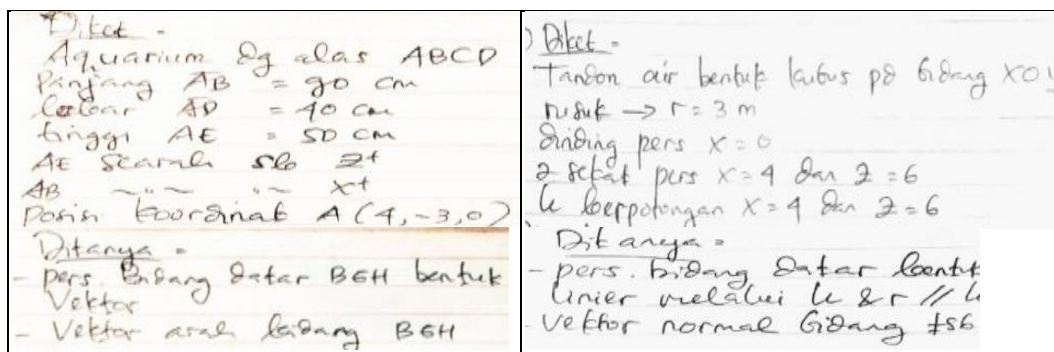 Diket =
Aquarium dg alas ABCD
Panjang AB = 90 cm
lebar AD = 40 cm
tinggi AE = 50 cm
AE searah sb z+
AB ~"~ "~ x+
Posisi koordinat A (4, -3, 0)
Ditanya =
- pers. Bidang datar BGH bentuk
Vektor
- Vektor arah bidang BGH
Diket =
Tandon air bentuk kubus pd bidang XOY
rusuk → r = 3 m
dinding pers x = 0
2 sekat pers x = 4 dan z = 6
k berpotongan x = 4 dan z = 6
Ditanya =
- pers. bidang datar bentuk
linier melalui k & r // k
- vektor normal bidang tsb